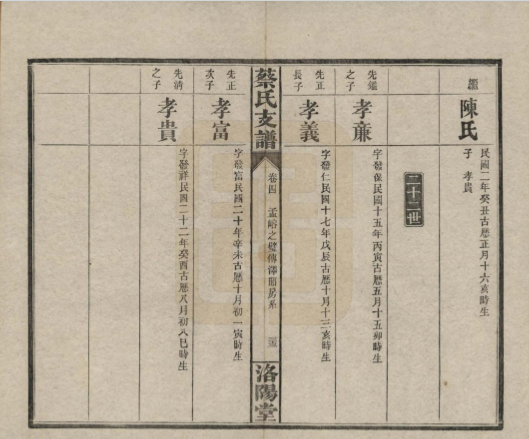 繼
陳氏
民國二年癸丑古曆正月十六亥時生
子 孝貴
二十二世
先鑑之子
孝亷
字發保民國十五年丙寅古曆五月十五卯時生
先正長子
孝義
字發仁民國十七年戊辰古曆十月十三亥時生
蔡氏支譜
卷四 孟
之
傳
房系
洛陽堂
先正次子
孝富
字發富民國二十年辛未古曆十月初一寅時生
先清之子
孝貴
字發祥民國二十二年癸酉古曆八月初八巳時生